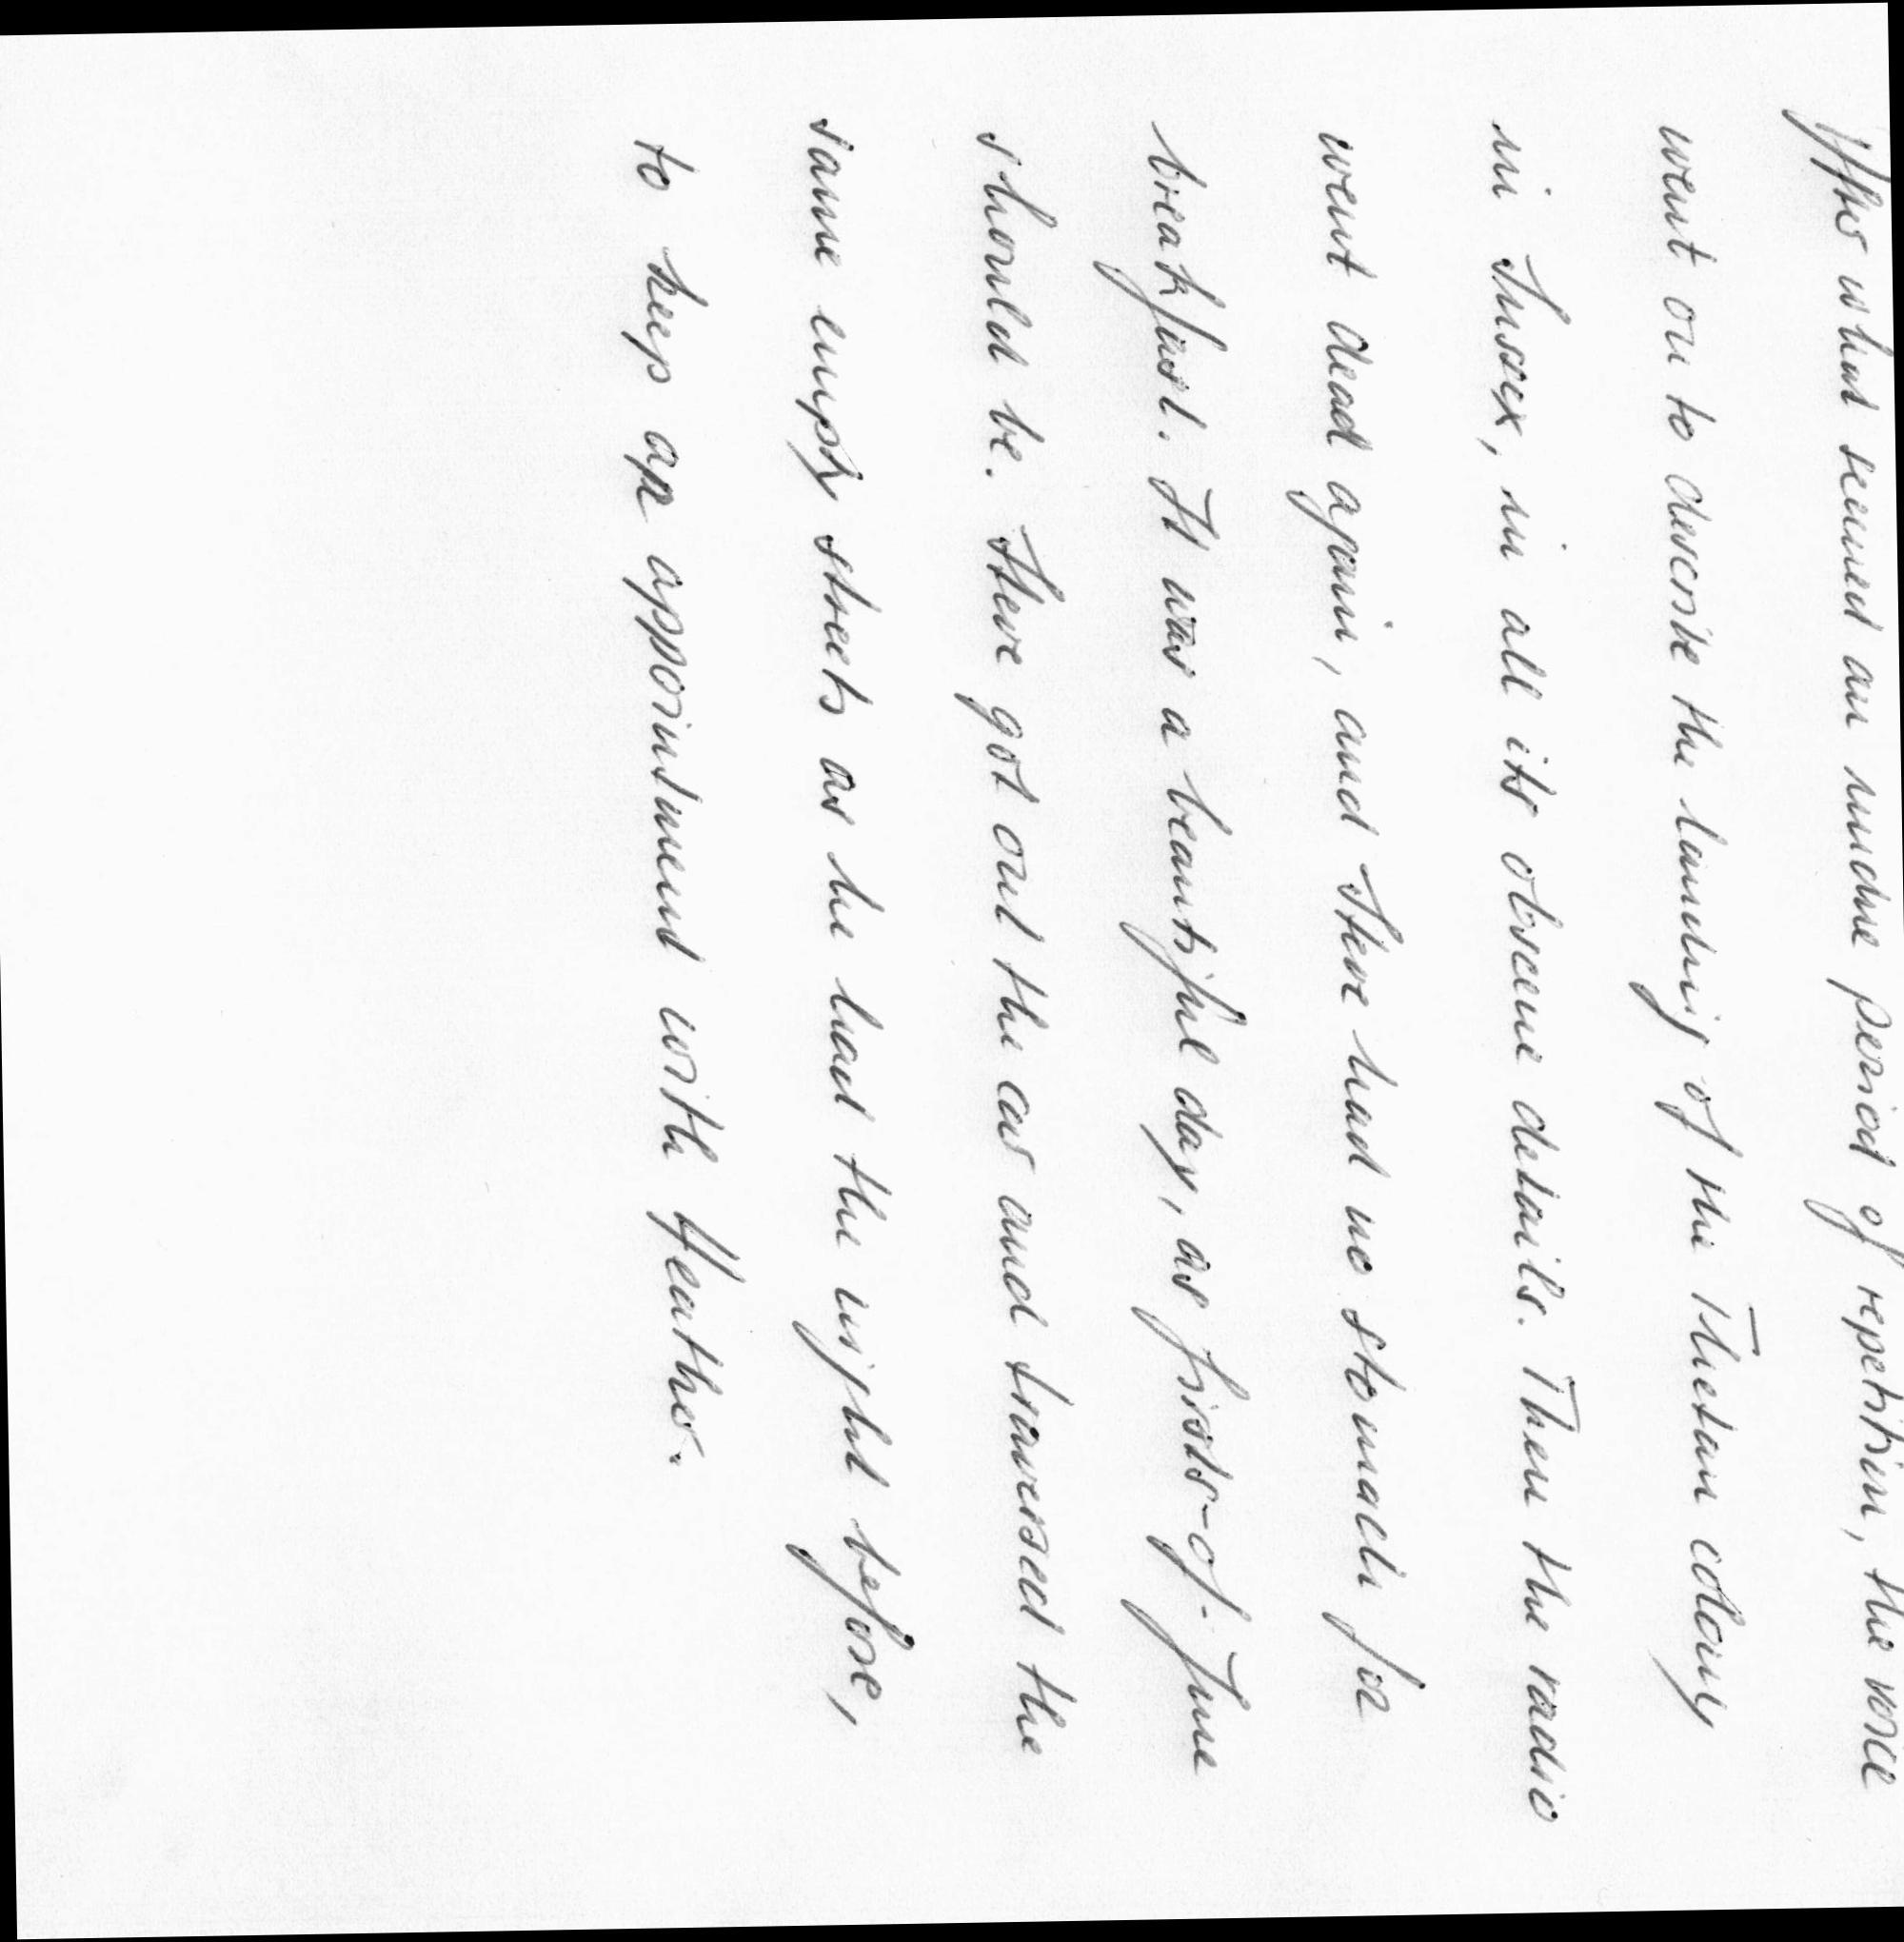 After what seemed an undue period of repetition, the voice
went on to describe the landing of the Thetan colony
in Sussex, in all its obscene details. Then the radio
went dead again, and Steve had no stomach for
breakfast. It was a beautiful day, as firsts-of-June
should be. Steve got out the car and traversed the
same empty streets as he had the night before,
to keep an appointment with Heather.